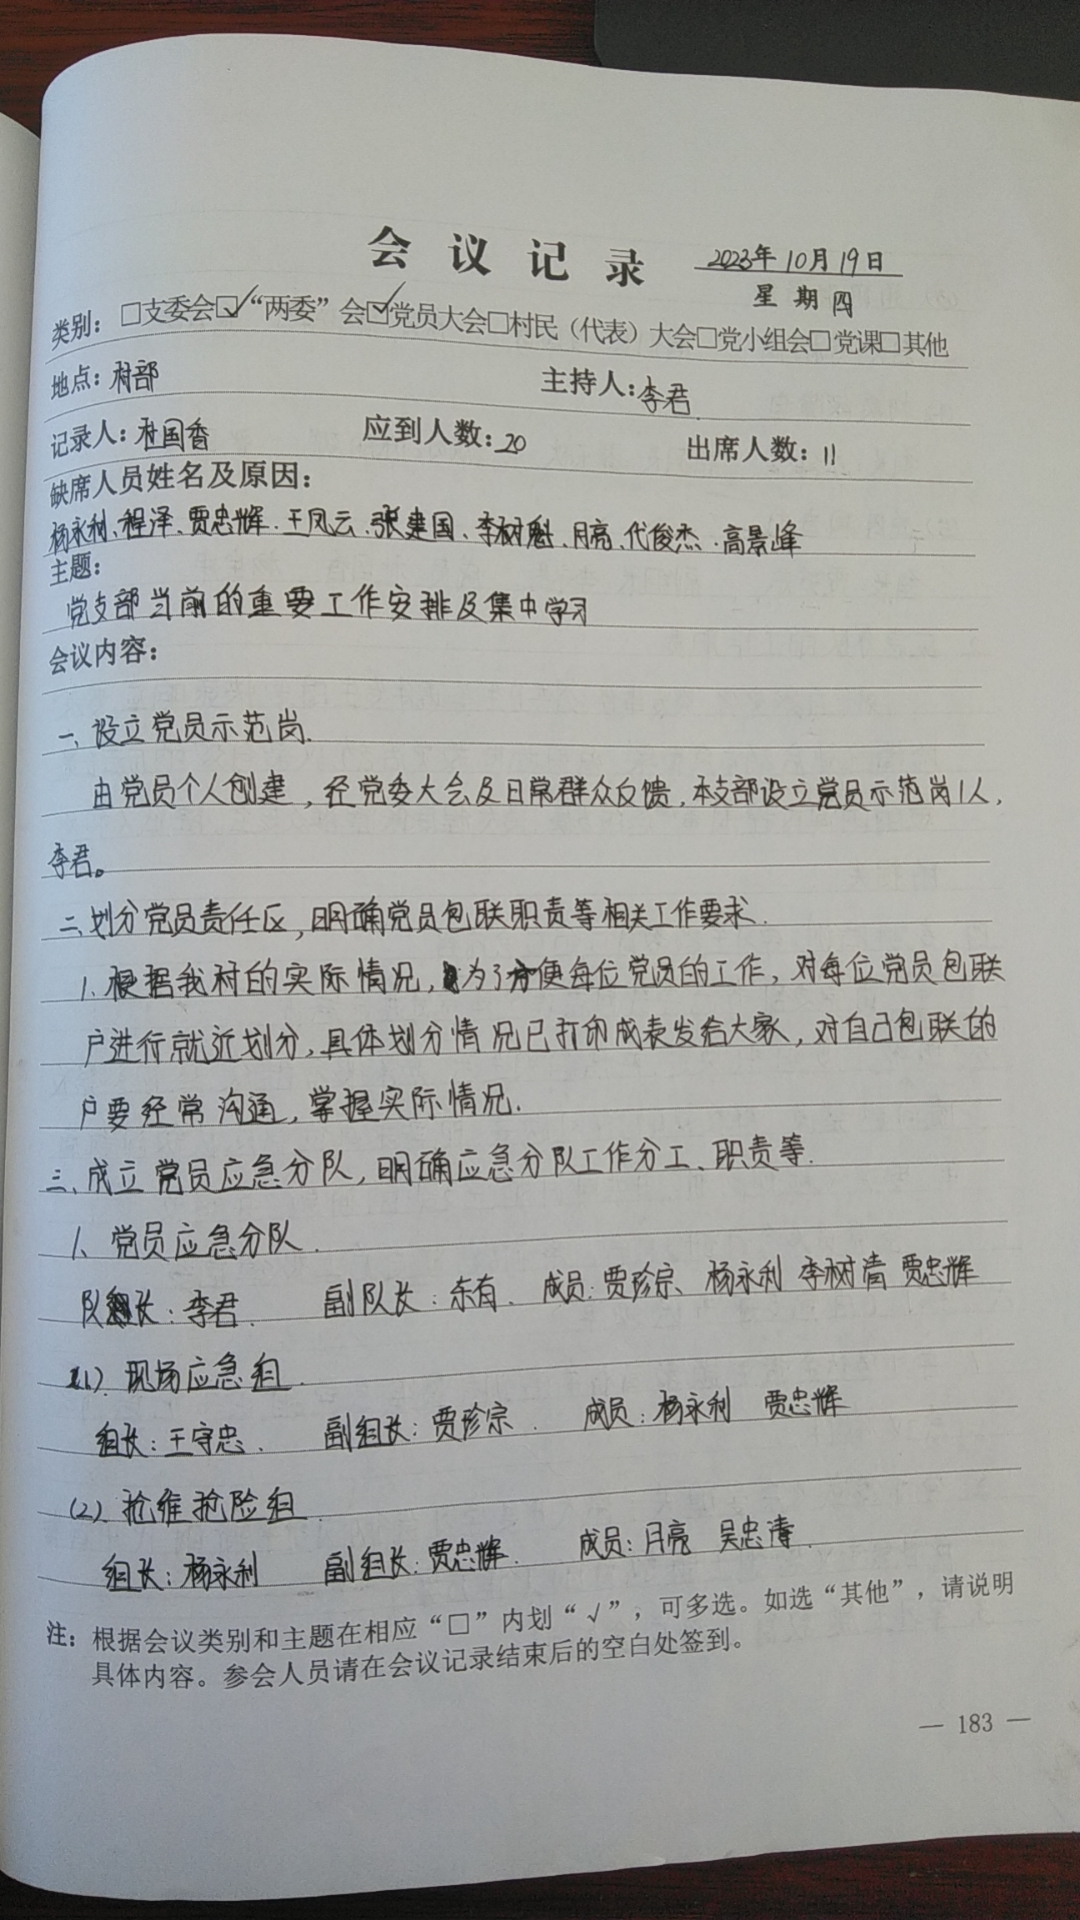 会议记录 2023年10月19日
星期四
类别：□支委会☑“两委”会☑党员大会□村民（代表）大会□党小组会□党课□其他
地点：村部 主持人：李君
记录人：杜国香 应到人数：20 出席人数：11
缺席人员姓名及原因：
杨永利、程泽、贾忠辉、王凤云、张建国、李树魁、月亮、代俊杰、高景峰
主题：
党支部当前的重要工作安排及集中学习
会议内容：
一、设立党员示范岗.
由党员个人创建，经党委大会及日常群众反馈，本支部设立党员示范岗1人，
李君。
二、划分党员责任区，明确党员包联职责等相关工作要求.
1.根据我村的实际情况，为了方便每位党员的工作，对每位党员包联
户进行就近划分，具体划分情况已打印成表发给大家，对自己包联的
户要经常沟通，掌握实际情况.
三、成立党员应急分队，明确应急分队工作分工、职责等.
1、党员应急分队.
队长：李君. 副队长：东有. 成员：贾珍宗、杨永利 李树清 贾忠辉
(1) 现场应急组.
组长：王守忠. 副组长：贾珍宗. 成员：杨永利 贾忠辉
(2) 抢维抢险组.
组长：杨永利 副组长：贾忠辉. 成员：月亮 吴忠涛.
注：根据会议类别和主题在相应“□”内划“√”，可多选。如选“其他”，请说明
具体内容。参会人员请在会议记录结束后的空白处签到。
— 183 —